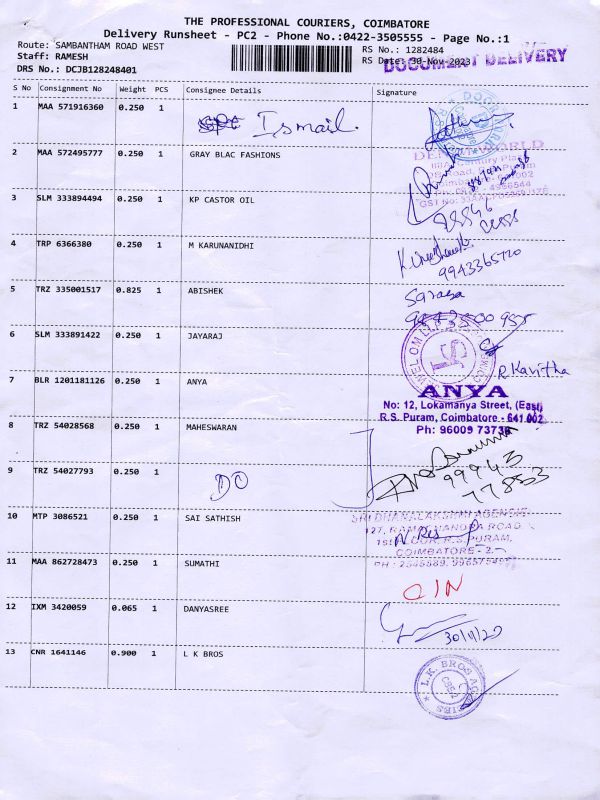 THE PROFESSIONAL COURIERS, COIMBATORE
Delivery Runsheet - PC2 - Phone No.:0422-3505555 - Page No.:1
Route: SAMBANTHAM ROAD WEST
RS No.: 1282484
Staff: RAMESH
RS Date: 30-Nov-2023
DOCUMENT DELIVERY
DRS No.: DCJB128248401
S No Consignment No Weight PCS Consignee Details Signature
1 MAA 571916360 0.250 1 Ismail
2 MAA 572495777 0.250 1 GRAY BLAC FASHIONS
3 SLM 333894494 0.250 1 KP CASTOR OIL
4 TRP 6366380 0.250 1 M KARUNANIDHI
9943365720
5 TRZ 335001517 0.825 1 ABISHEK
6 SLM 333891422 0.250 1 JAYARAJ
R Kavitha
7 BLR 1201181126 0.250 1 ANYA
ANYA
No: 12, Lokamanya Street, (East)
R.S. Puram, Coimbatore - 641 002.
Ph: 96009 73738
8 TRZ 54028568 0.250 1 MAHESWARAN
99943
77853
9 TRZ 54027793 0.250 1 DC
10 MTP 3086521 0.250 1 SAI SATHISH
SRI DHANALAKSHMI AGENCIES
127, RAMACHANDRA ROAD,
1ST FLOOR, R.S. PURAM,
COIMBATORE - 2.
11 MAA 862728473 0.250 1 SUMATHI
12 IXM 3420059 0.065 1 DANYASREE
30/11/23
13 CNR 1641146 0.900 1 L K BROS
L.K. BROS AGENCIES